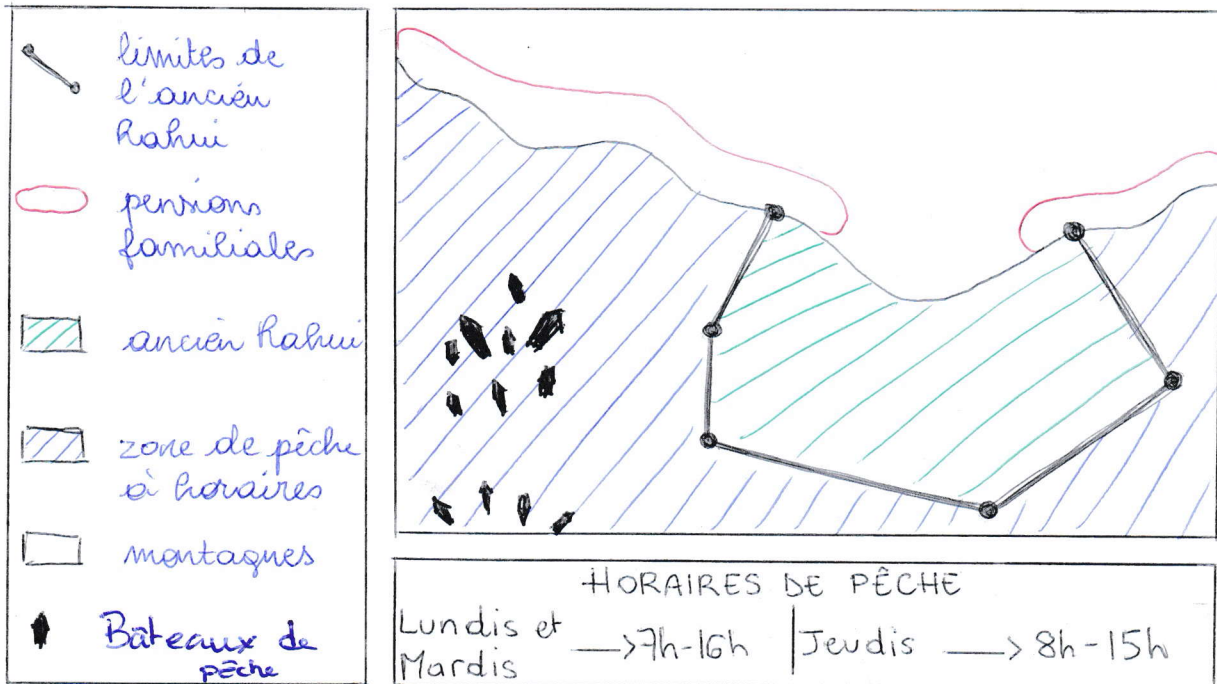 limites de
l'ancien
Rahui
pensions
familiales
ancien Rahui
zone de pêche
à horaires
montagnes
Bâteaux de
pêche
HORAIRES DE PÊCHE
Lundis et
Mardis —> 7h-16h | Jeudis —> 8h-15h